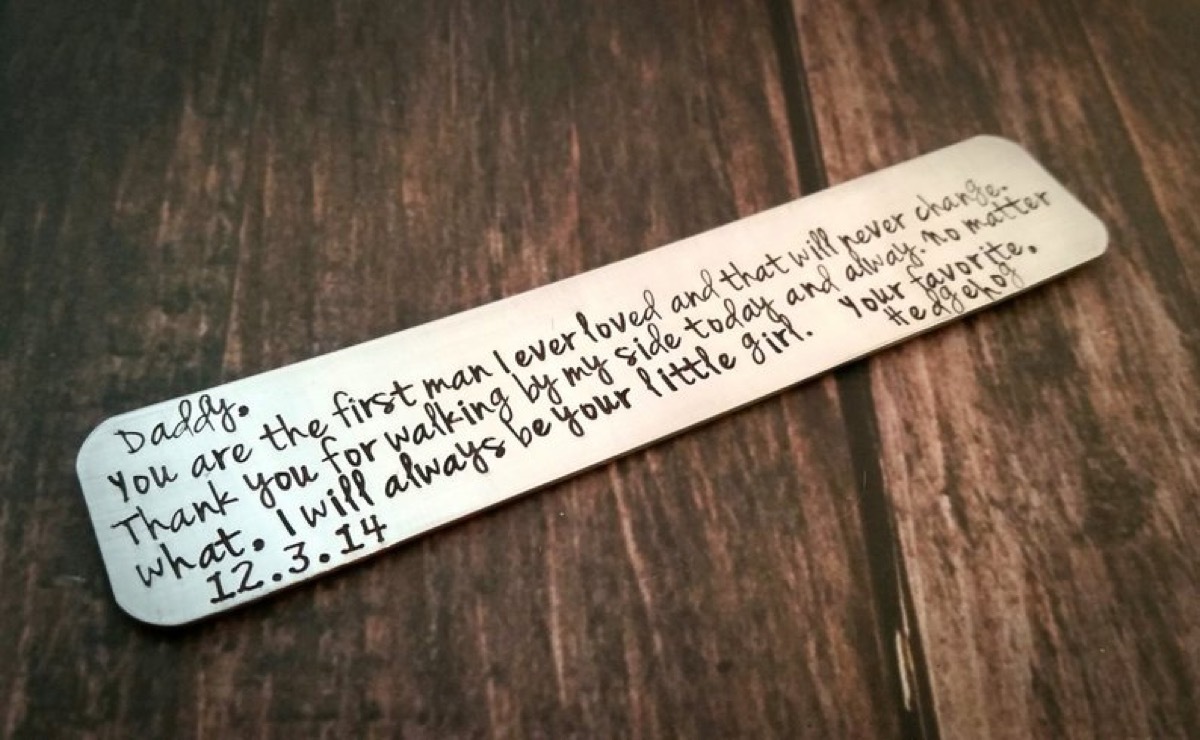 Daddy.
You are the first man I ever loved and that will never change.
Thank you for walking by my side today and alway. no matter
what. I will always be your little girl. Your favorite.
12.3.14 Hedgehog